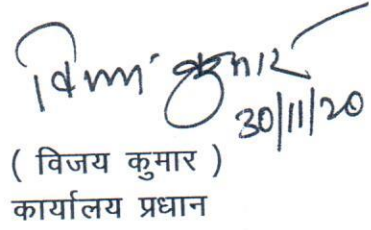 विजय कुमार
30/11/20
( विजय कुमार )
कार्यालय प्रधान